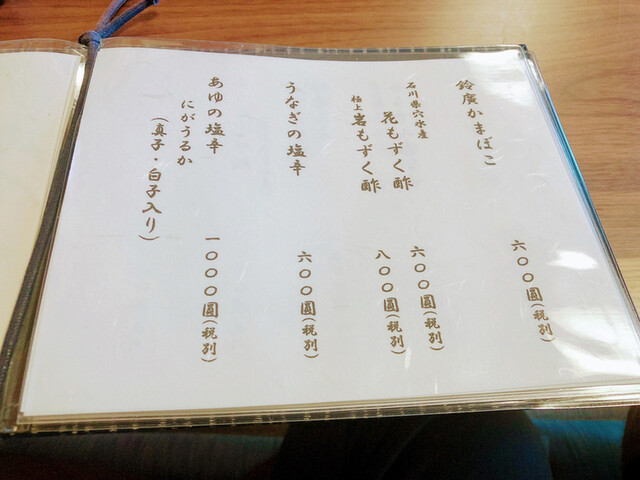 鈴廣かまぼこ
六〇〇圓(税別)
石川県穴水産
花もずく酢
六〇〇圓(税別)
極上
岩もずく酢
八〇〇圓(税別)
うなぎの塩辛
六〇〇圓(税別)
あゆの塩辛
一〇〇〇圓(税別)
にがうるか
(真子・白子入り)